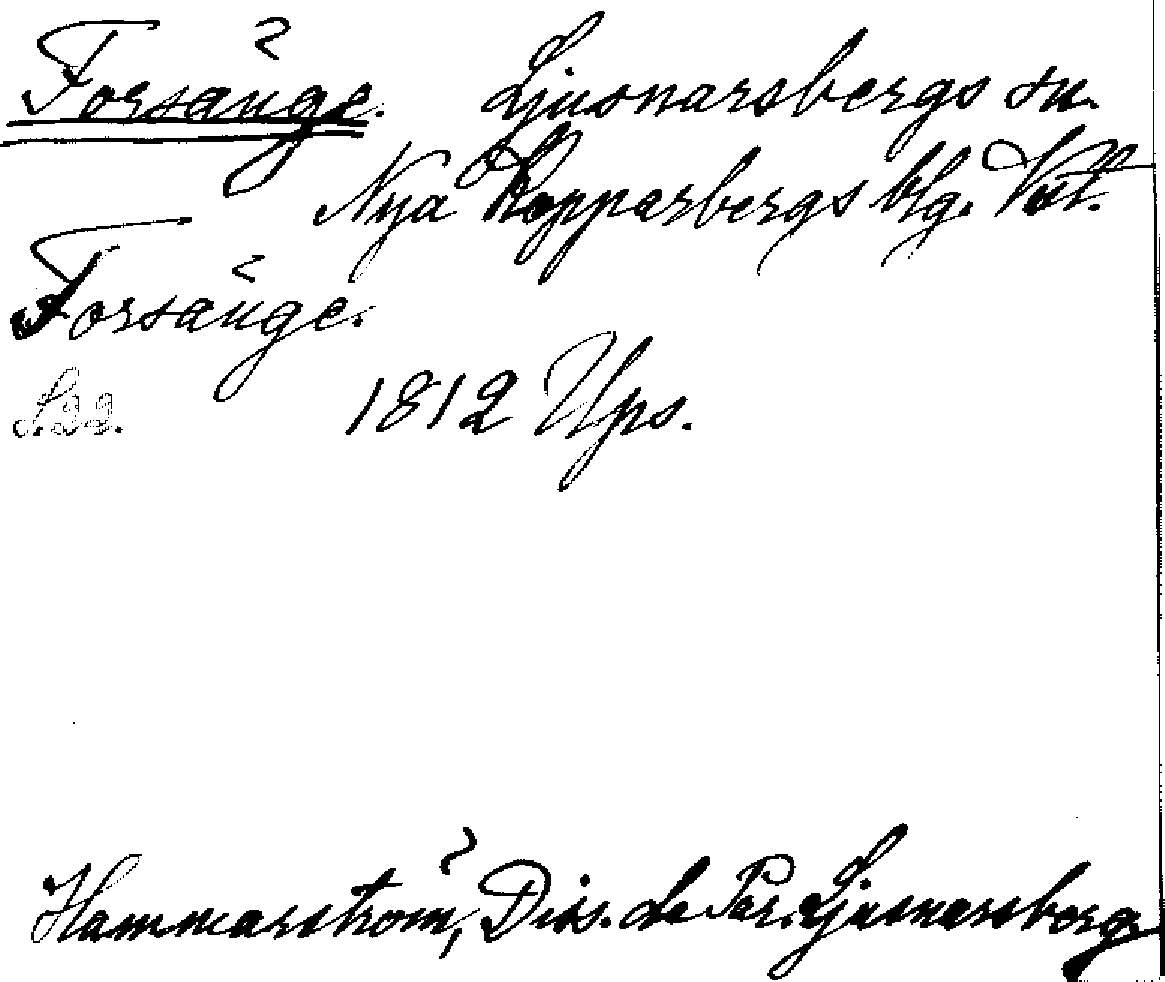 Forsänge. Ljusnarsbergs sn.
Nya Kopparbergs blg. Vstl.
Forsänge.
S. 22. 1812 Ups.
Hammarström, Diss. de Par. Ljusnarsberg